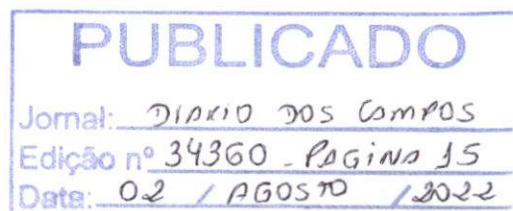 PUBLICADO
Jornal: DIARIO DOS CAMPOS
Edição nº 34360 - PAGINA 15
Data: 02 / AGOSTO / 2022